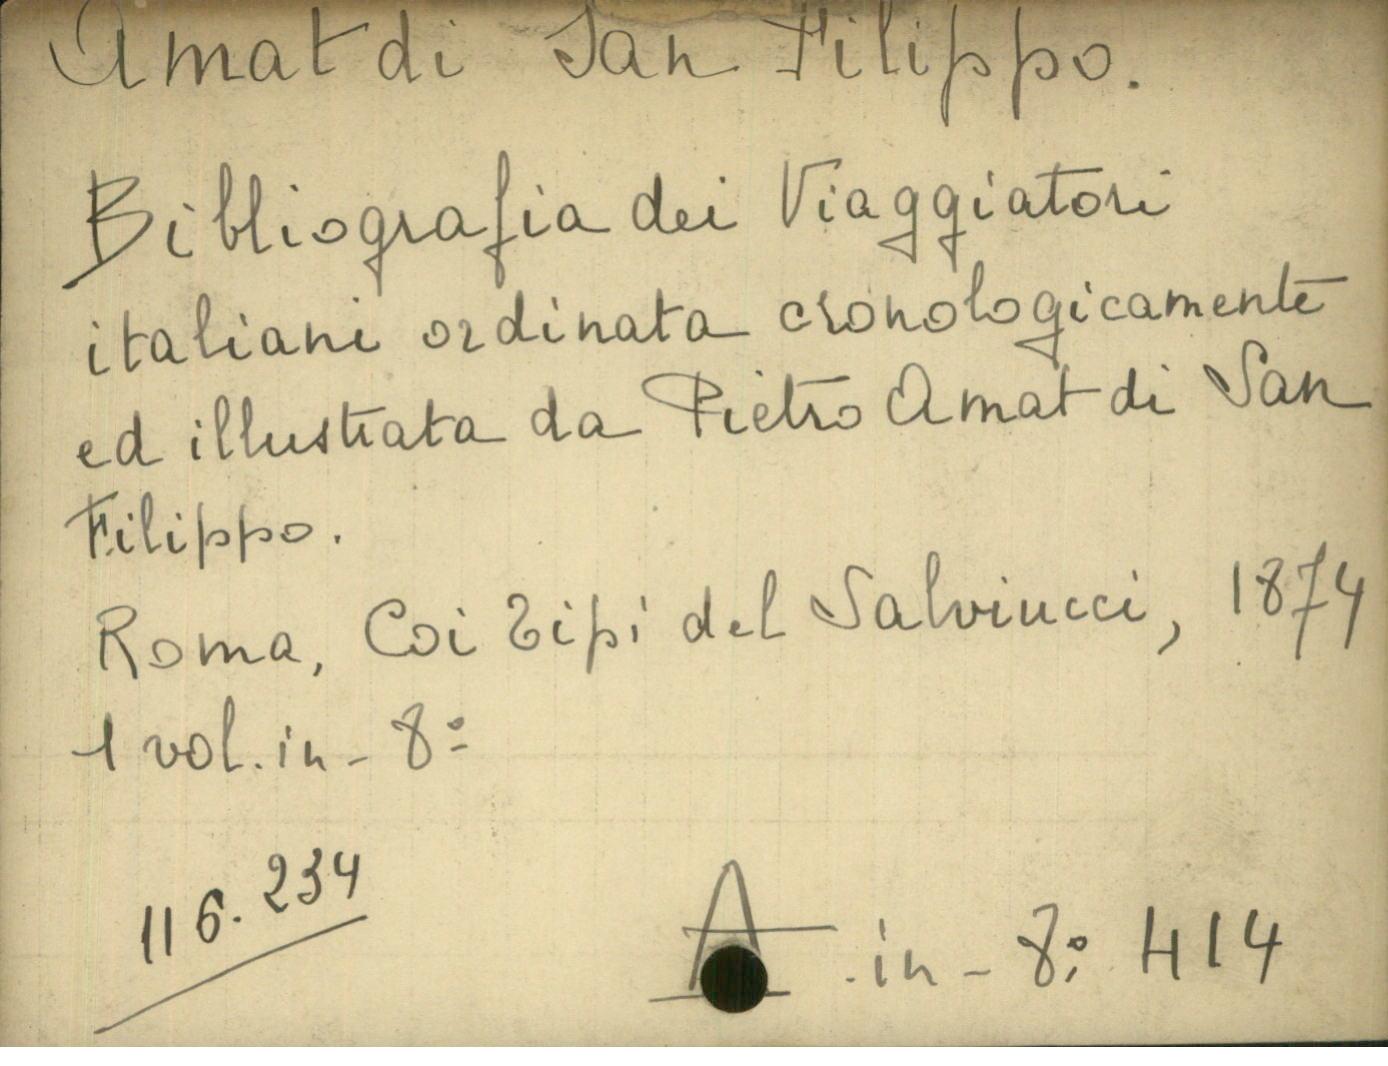 Amat di San Filippo.
Bibliografia dei Viaggiatori
italiani ordinata cronologicamente
ed illustrata da Pietro Amat di San
Filippo.
Roma, Coi Tipi del Salviucci, 1874
1 vol. in - 8º
116.234
A. in - 8º 414